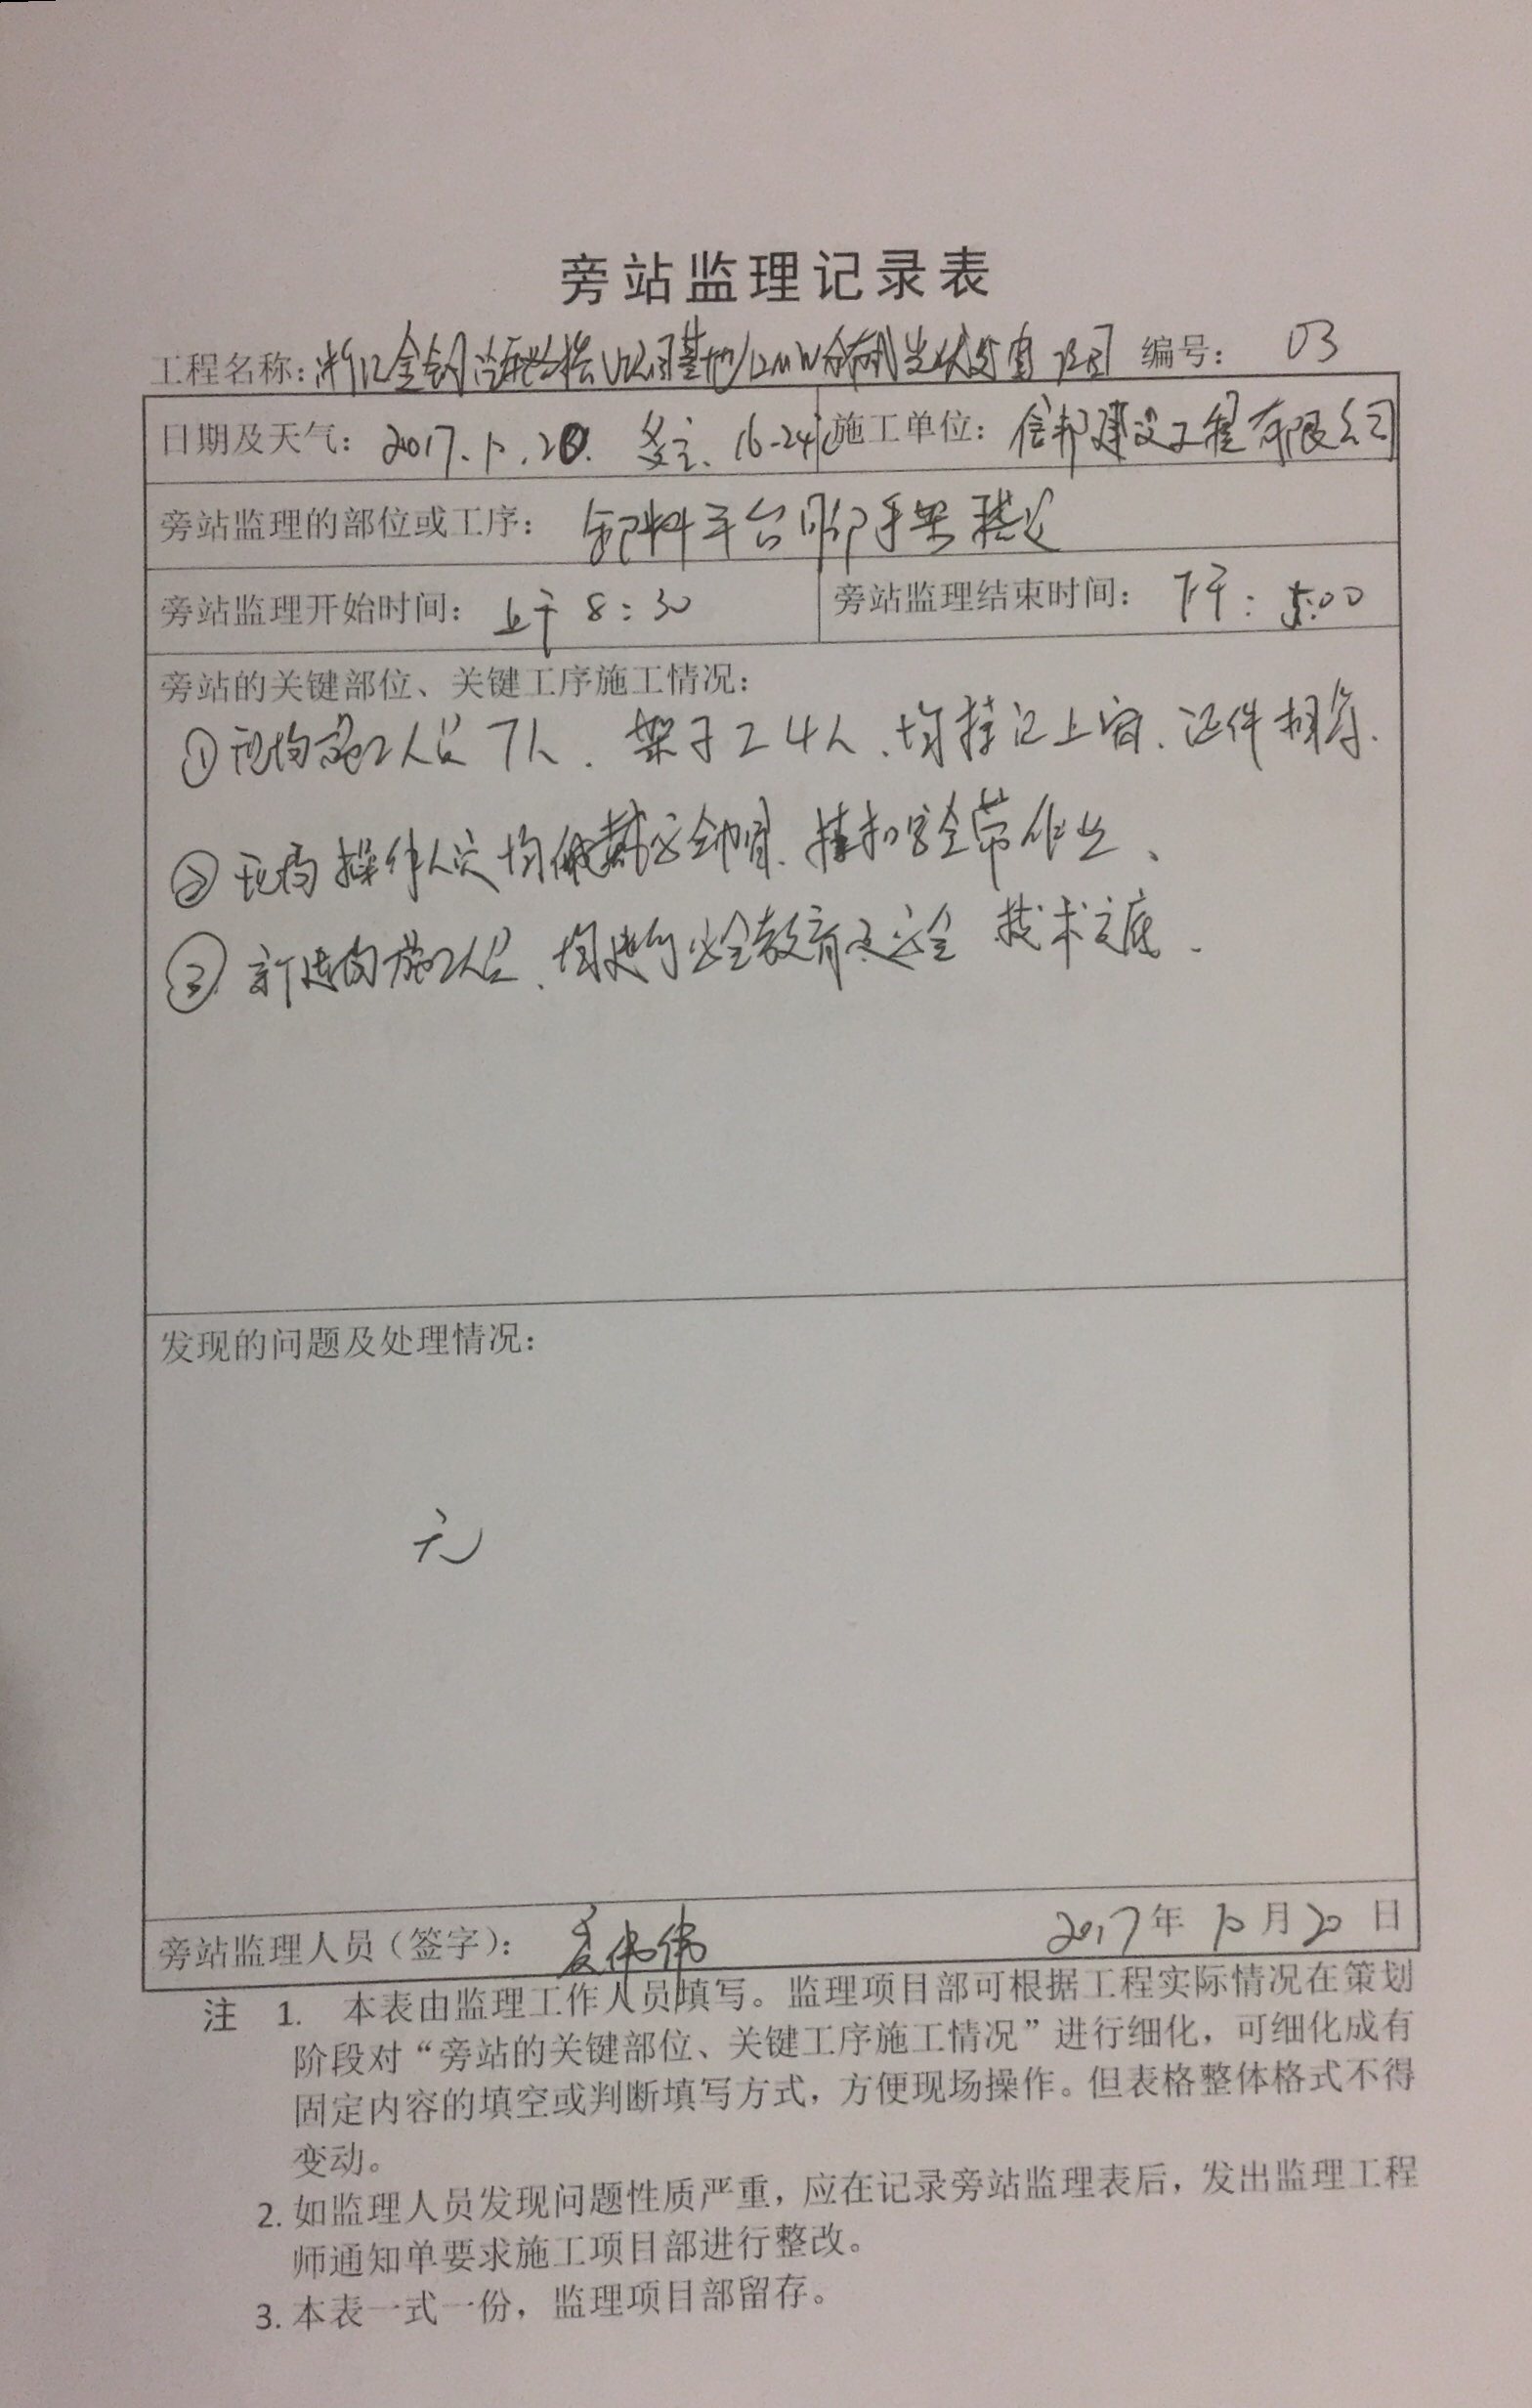 旁站监理记录表
工程名称：浙江金钢 基地12MW分布式光伏发电项目 编号： 03
日期及天气： 2017.10.20. 多云、16-24℃ 施工单位：信邦建设工程有限公司
旁站监理的部位或工序： 卸料平台脚手架搭设
旁站监理开始时间： 上午 8：30 旁站监理结束时间： 下午：5:00
旁站的关键部位、关键工序施工情况：
①现场施工人员7人、架子工4人、均持证上岗、证件相符.
②现场操作人员均佩戴安全帽、挂扣安全带作业、
③新进场施工人员、均进行安全教育及安全技术交底.
发现的问题及处理情况：
无
旁站监理人员（签字）： 2017年10月20日
注 1. 本表由监理工作人员填写。监理项目部可根据工程实际情况在策划
阶段对“旁站的关键部位、关键工序施工情况”进行细化，可细化成有
固定内容的填空或判断填写方式，方便现场操作。但表格整体格式不得
变动。
2. 如监理人员发现问题性质严重，应在记录旁站监理表后，发出监理工程
师通知单要求施工项目部进行整改。
3. 本表一式一份，监理项目部留存。